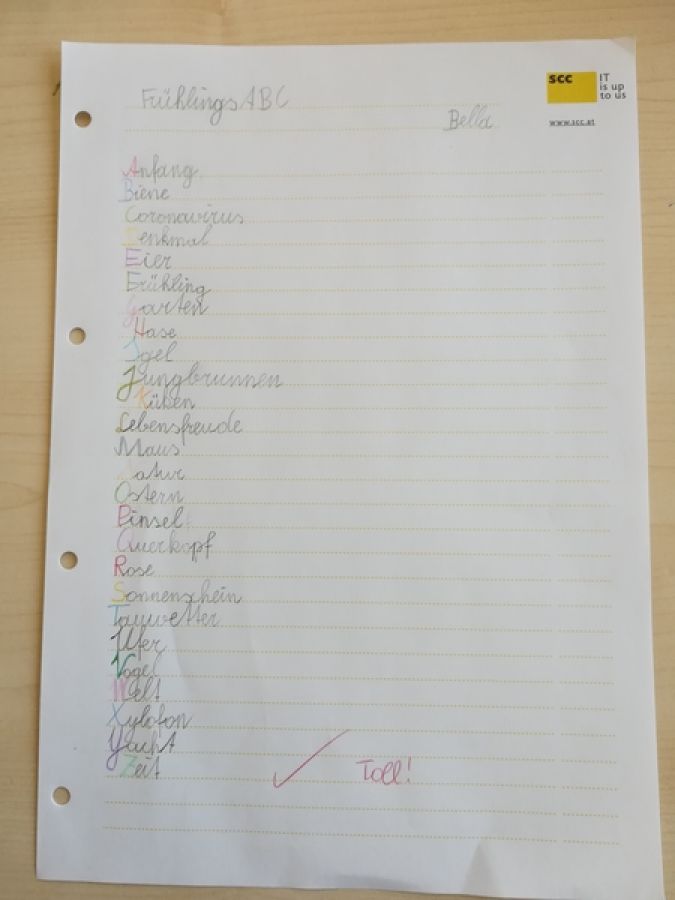 scc
IT
is up
to us
www.scc.at
Frühlings ABC
Bella
Anfang
Biene
Coronavirus
Denkmal
Eier
Frühling
Garten
Hase
Igel
Jungbrunnen
Küken
Lebensfreude
Maus
Natur
Ostern
Pinsel
Querkopf
Rose
Sonnenschein
Tauwetter
Ufer
Vogel
Welt
Xylofon
Yacht
Zeit
Toll!